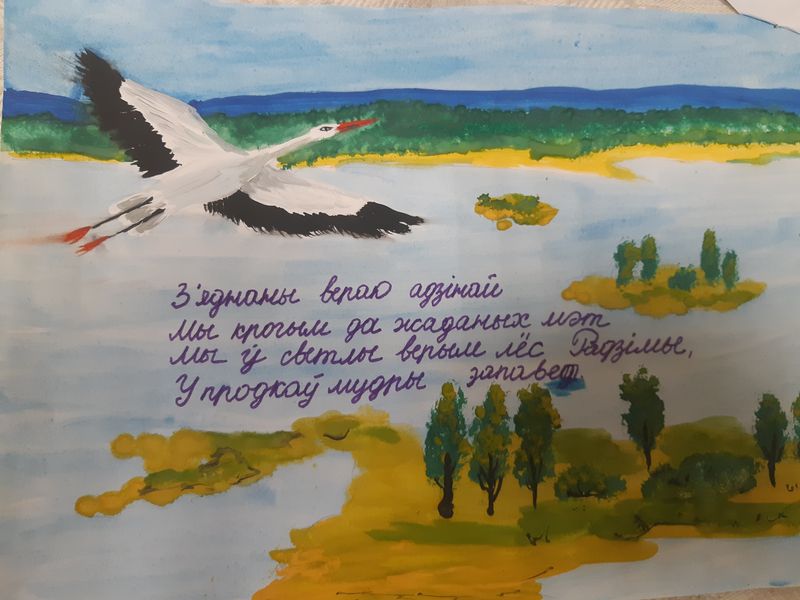 З'яднаны вераю адзінай
Мы крочым да жаданых мэт
Мы ў светлы верым лёс Радзімы,
У продкаў мудры запавет